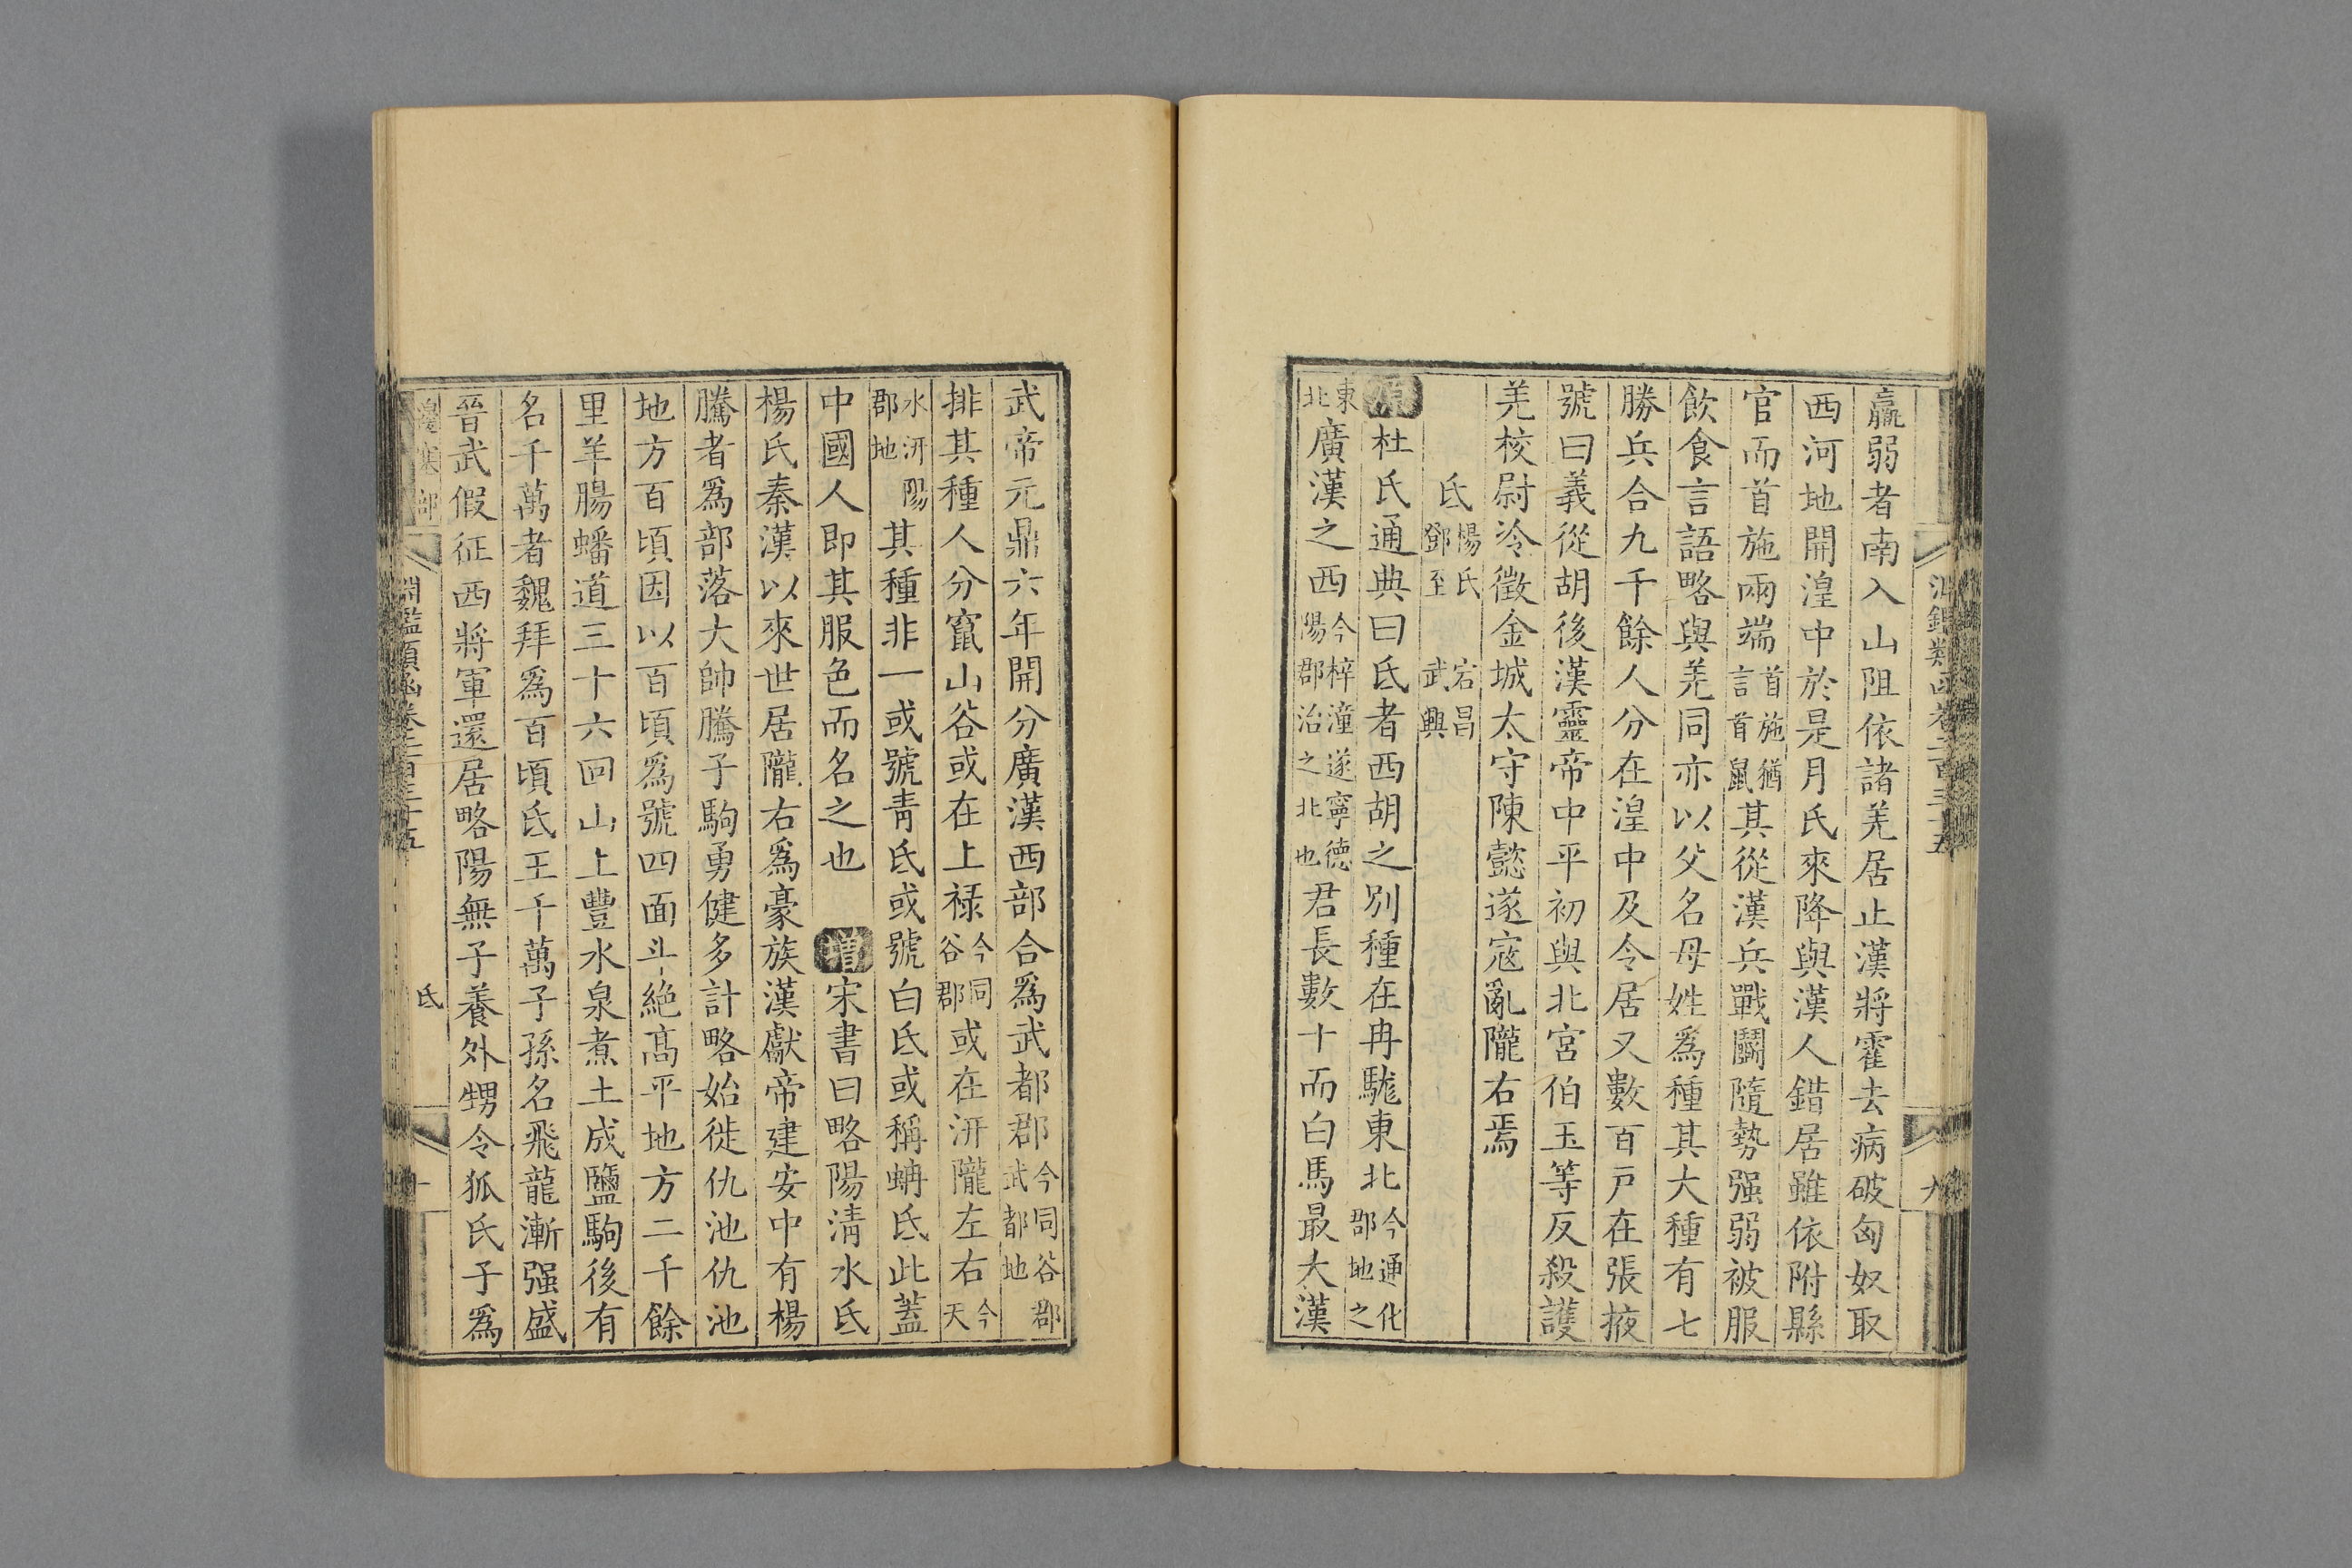 羸弱者南入山阻依諸羌居止漢將霍去病破匈奴取
西河地開湟中於是月氏來降與漢人錯居雖依附縣
官而首施兩端首施猶言首鼠其從漢兵戰鬭隨勢强弱被服
飲食言語略與羌同亦以父名母姓爲種其大種有七
勝兵合九千餘人分在湟中及令居又數百戸在張掖
號曰義從胡後漢靈帝中平初與北宮伯玉等反殺護
羌校尉泠徵金城太守陳懿遂寇亂隴右焉
氐楊氏 宕昌鄧至 武興
原杜氏通典曰氐者西胡之別種在冉駹東北今通化郡地之
東北廣漢之西今梓潼遂寧德陽郡治之北也君長數十而白馬最大漢
武帝元鼎六年開分廣漢西部合爲武都郡今同谷郡武都地
排其種人分竄山谷或在上禄今同谷郡或在汧隴左右今天
水汧陽郡地其種非一或號青氐或號白氐或稱蚺氐此蓋
中國人即其服色而名之也 增宋書曰略陽清水氐
楊氏秦漢以來世居隴右爲豪族漢獻帝建安中有楊
騰者爲部落大帥騰子駒勇健多計略始徙仇池仇池
地方百頃因以百頃爲號四面斗絶高平地方二千餘
里羊腸蟠道三十六回山上豐水泉煮土成鹽駒後有
名千萬者魏拜爲百頃氐王千萬子孫名飛龍漸强盛
晉武假征西將軍還居略陽無子養外甥令狐氏子爲
邊塞部 淵鑑類函卷二百三十五 氐